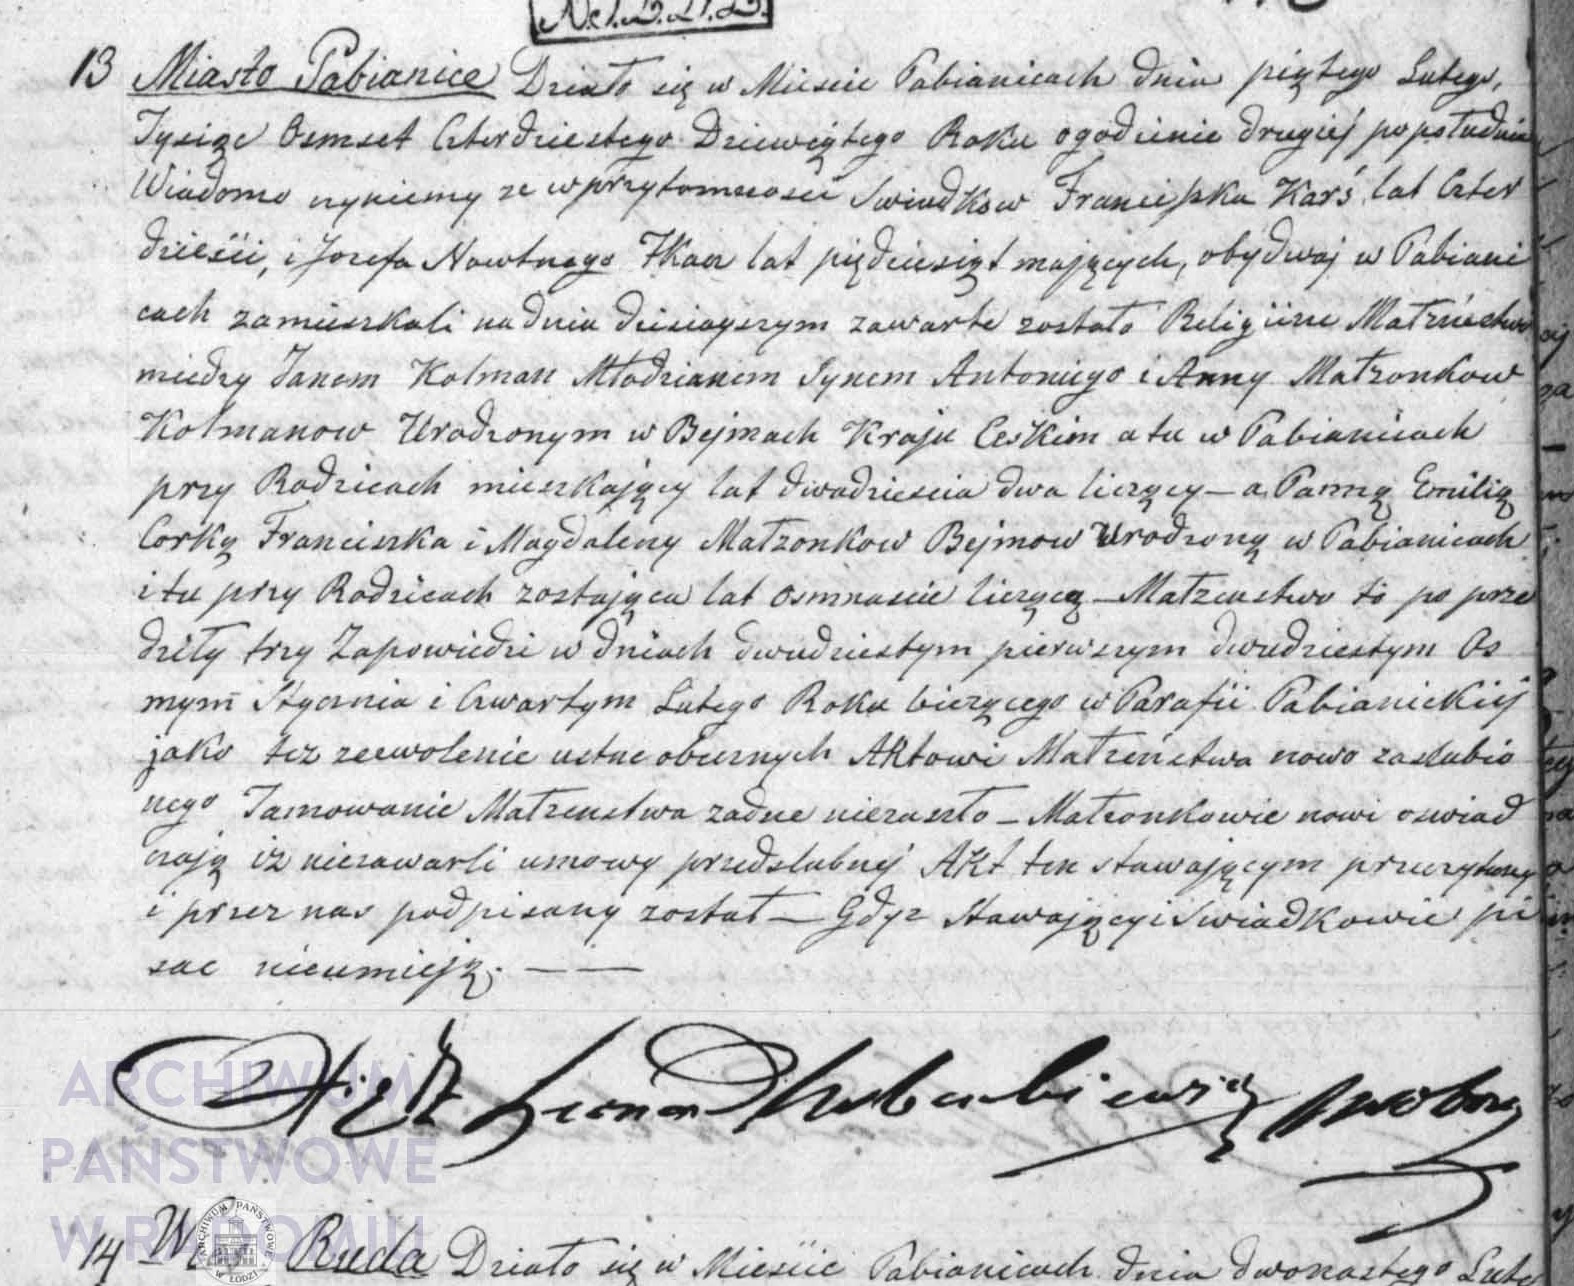 13 Miasto Pabianice Działo się w Miescie Pabianicach dnia piątego Lutego,
Tysiąc Osmset Czterdziestego Dziewiątego Roku ogodzinie drugiej popołudniu
Wiadomo czyniemy ze wprzytomnosci Swiadkow Franciszka Karś lat Czter
dzieści, i Jozefa Nowtnego Tkacz lat pięddziesiąt mających, obydwaj w Pabiani
cach zamieszkali nadniu dzisiayszym zawarte zostało Religiine Małżeństwo
miedzy Janem Kolman Młodzianem Synem Antoniego i Anny Małzonkow
Kolmanow Urodzonym w Bejmach Kraju Ceskim a tu w Pabianicach
przy Rodzicach mieszkający lat dwadziescia dwa liczący – a Panną Emilią
Corką Franciszka i Magdaleny Małzonkow Bejmow Urodzoną w Pabianicach
i tu przy Rodzicach zostająca lat osmnascie liczącą – Małzenstwo to po prze
dziły trzy Zapowiedzi w dniach dwudziestym pierwszym dwudziestym Os
mym Stycznia i Czwartym Lutego Roku bieżącego w Parafii Pabianickiej
jako tez zezwolenie ustne obecnych Aktowi Małzeństwa nowo zaslubio
nego Tamowanie Małzenstwa zadne niezaszło – Małzonkowie nowi oswiad
czają iż niezawarli umowy przedslubnej Akt ten stawającym przeczytany
i przez nas podpisany został – Gdyz Stawający i Swiadkowie pi
sac nieumieją. — —
ARCHIWUM
PAŃSTWOWE
W RADOMIU
ARCHIWUM PAŃSTWOWE W ŁODZI
14 Ruda Działo się w Mieście Pabianicach dnia dwonastego Lute